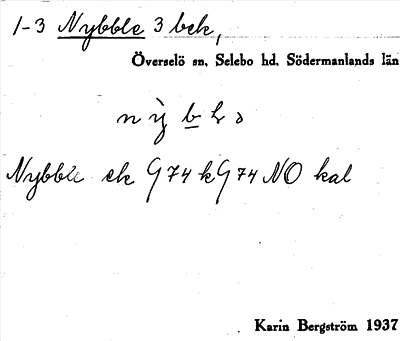 1-3 Nybble 3 bek,
Överselö sn. Selebo hd. Södermanlands län
Nybble ek G74 k G74 NO kal
Karin Bergström 1937